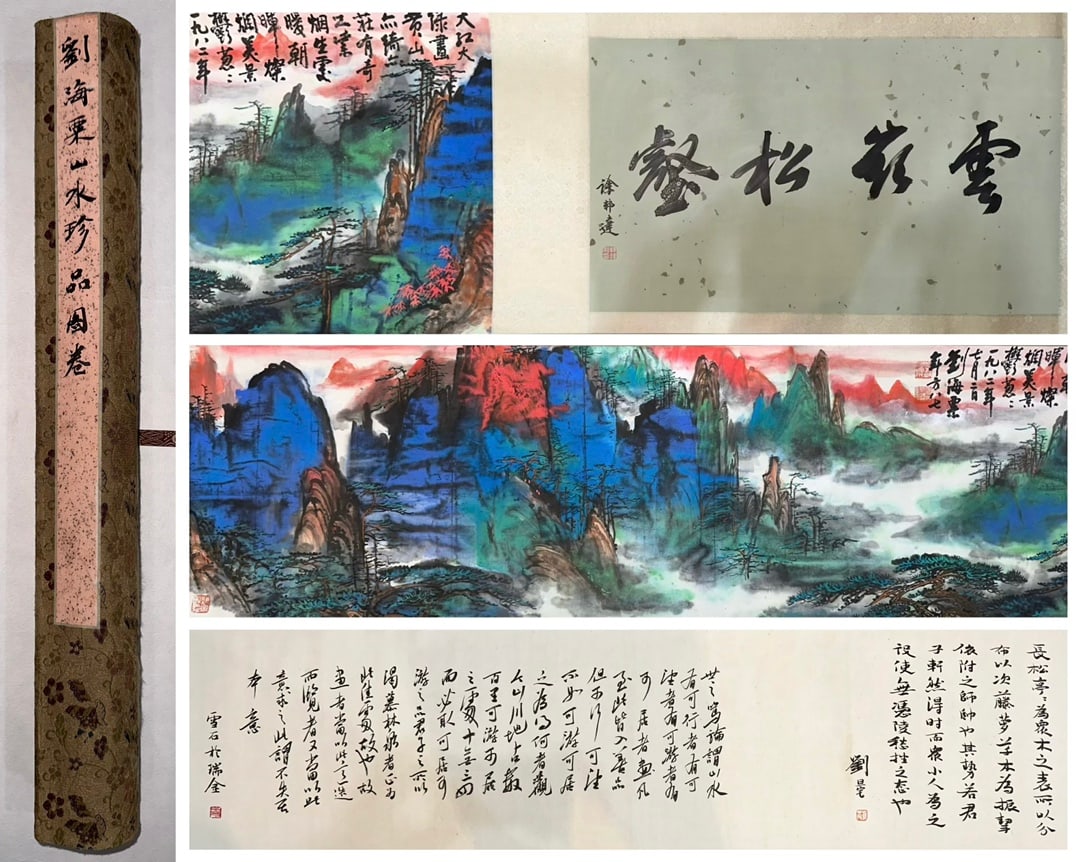 劉海粟山水珍品圖卷
雲嶺松壑
徐邦達
大紅大
綠畫
黄山
亦綺亦
莊有奇
烟生靄
暖朝
暉燦
爛美景
鬱蔥〻
一九八二年
暉燦
爛美景
鬱蔥〻
一九八二年
七月二日
劉海粟
年方八七
長松亭〻為衆木之表所以分
布以次藤蘿草木為振挈
依附之師帥也其勢若君
子軒然得時而衆小人為之
役使無憑陵愁挫之态也
劉旦宅
世之篤論謂山水
有可行者有可
望者有可游者有
可居者畫凡
至此皆入妙品
但可行可望
不如可游可居
之為得何者觀
今山川地占數
百里可游可居
之處十無三四
而必取可居可
游之品君子之所以
渴慕林泉者正為
此佳處故也故
畫者當以此意造
而覽者又當以此
意求之此謂不失其
本意
雪石於瑞金